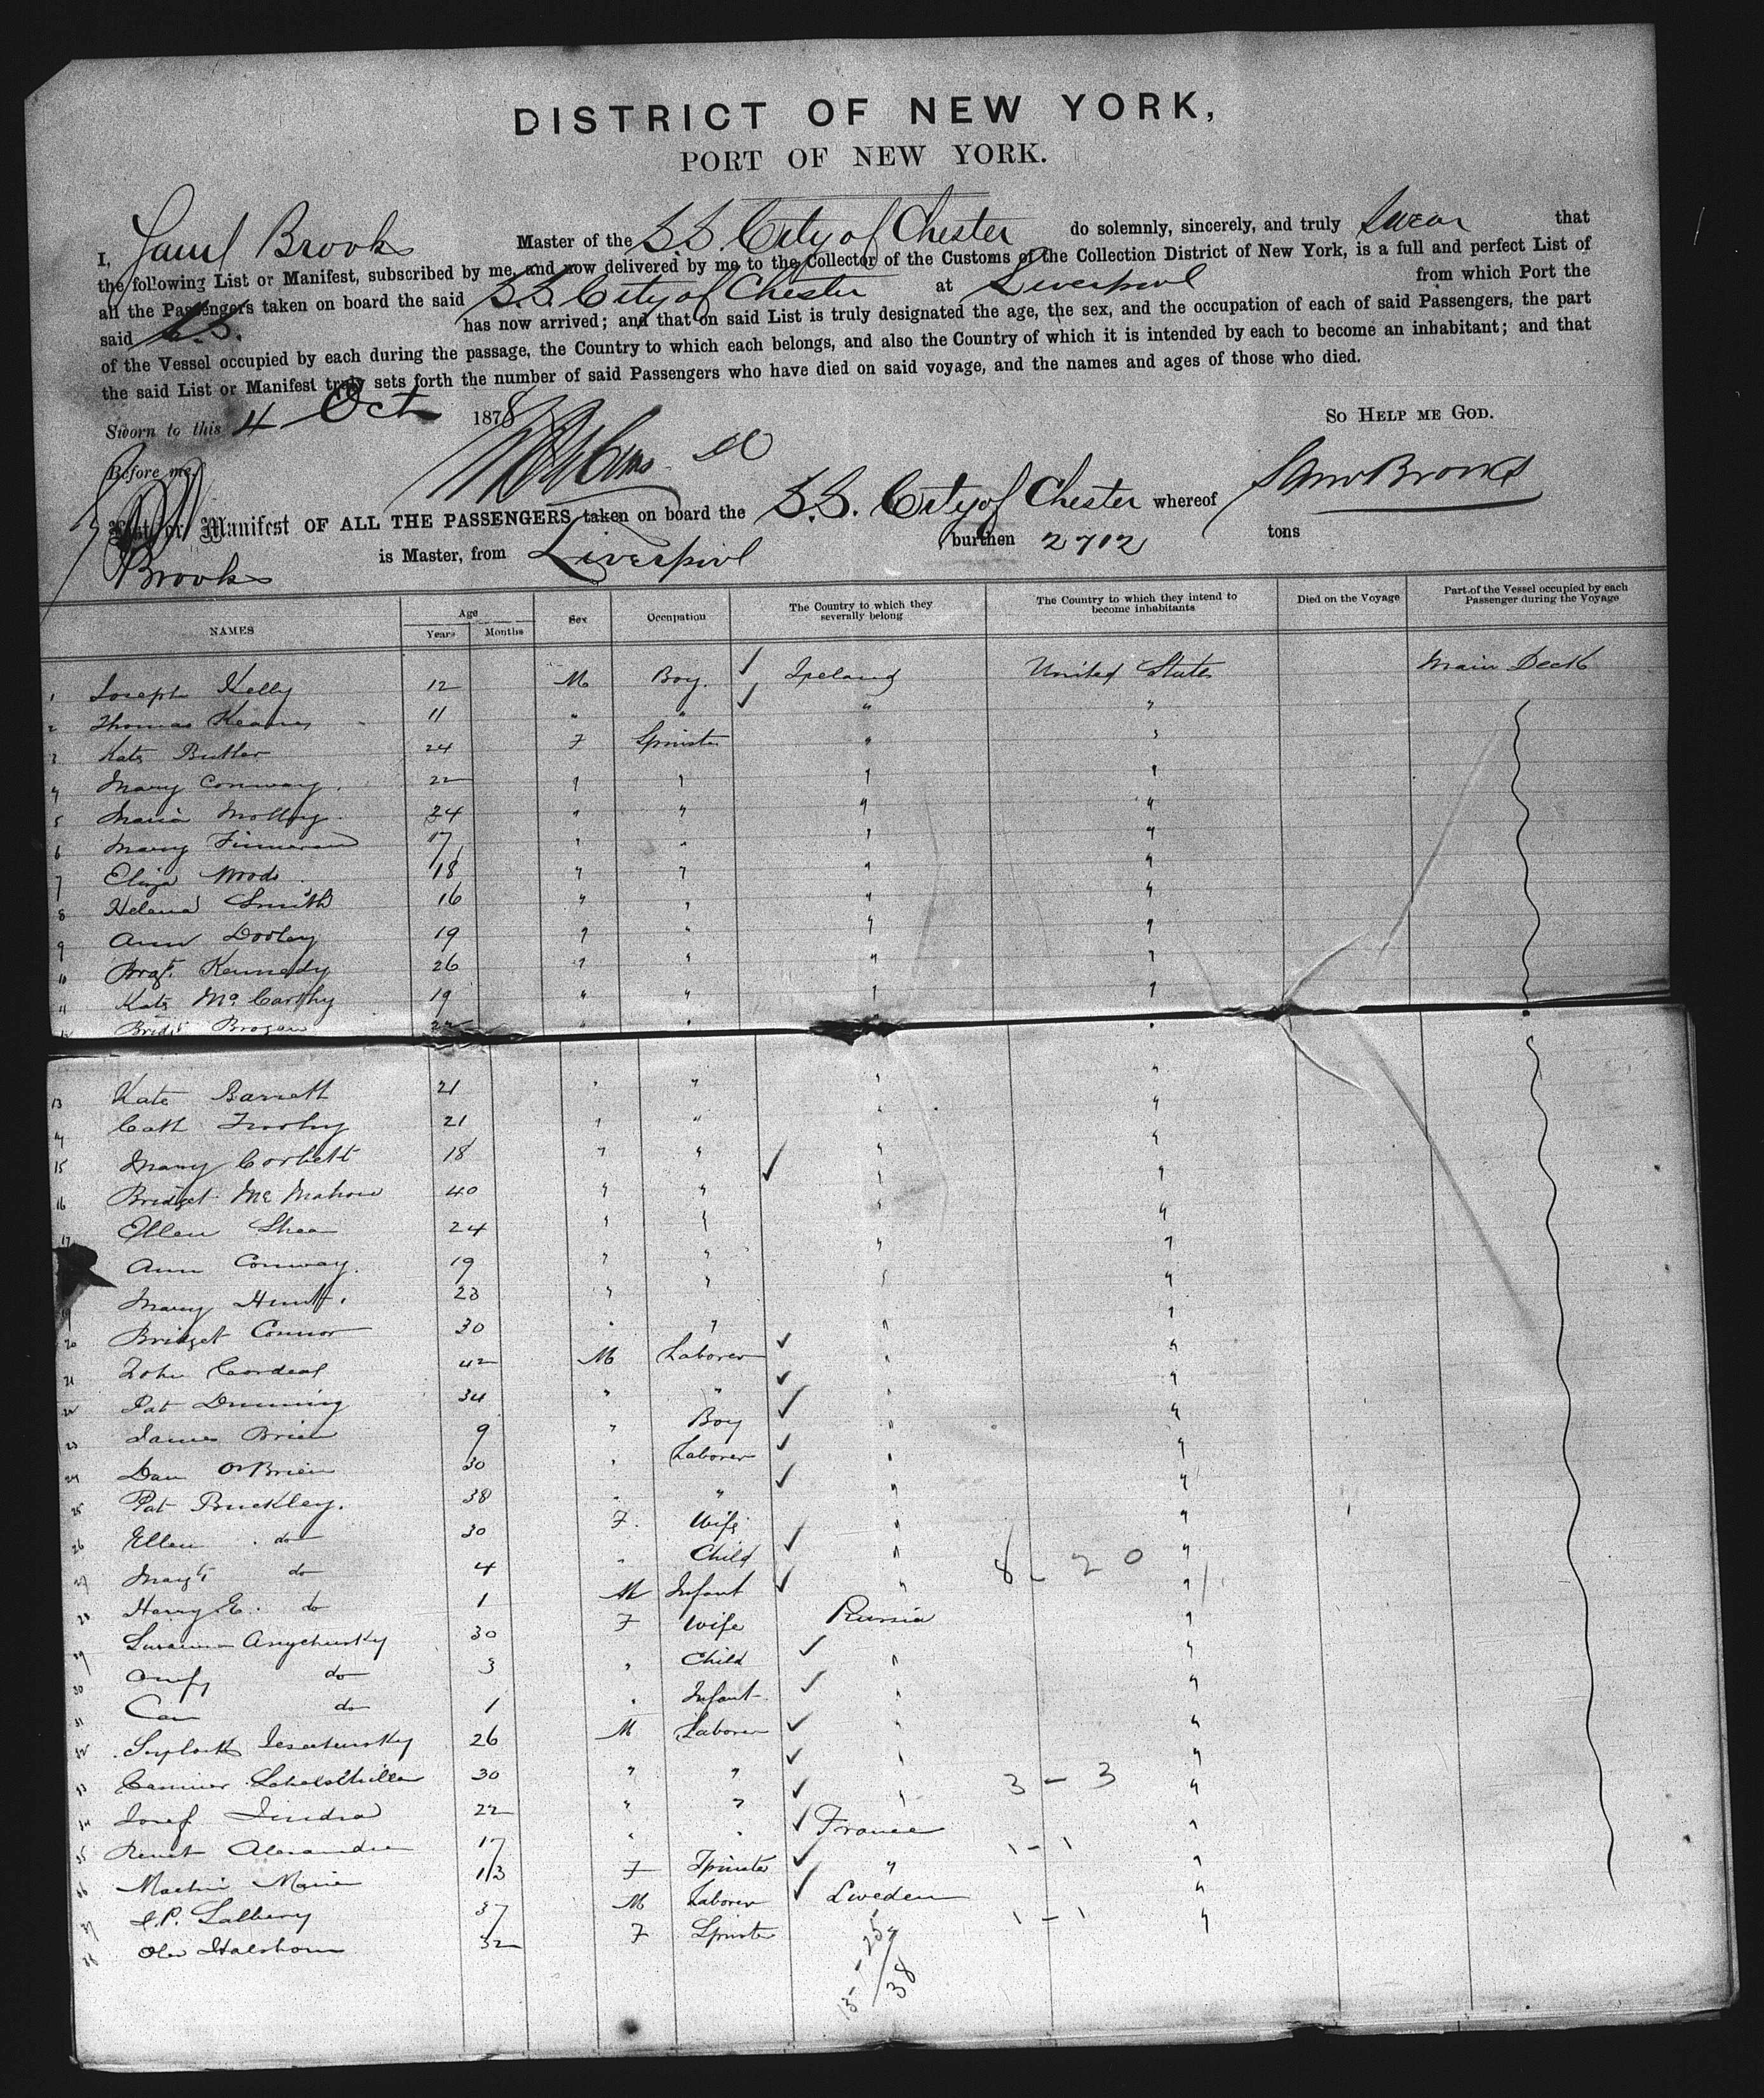 DISTRICT OF NEW YORK,
PORT OF NEW YORK.
I, Saml Brooks Master of the S.S. City of Chester do solemnly, sincerely, and truly Swear that
the following List or Manifest, subscribed by me, and now delivered by me to the Collector of the Customs of the Collection District of New York, is a full and perfect List of
all the Passengers taken on board the said S.S. City of Chester at Liverpool from which Port the
said S.S. has now arrived; and that on said List is truly designated the age, the sex, and the occupation of each of said Passengers, the part
of the Vessel occupied by each during the passage, the Country to which each belongs, and also the Country of which it is intended by each to become an inhabitant; and that
the said List or Manifest truly sets forth the number of said Passengers who have died on said voyage, and the names and ages of those who died.
Sworn to this 4 Oct 1878 So Help me God.
Before me, Saml Brooks
List or Manifest OF ALL THE PASSENGERS taken on board the S.S. City of Chester whereof
Brooks is Master, from Liverpool burthen 2712 tons
NAMES Age Years Months Sex Occupation The Country to which they severally belong The Country to which they intend to become inhabitants Died on the Voyage Part of the Vessel occupied by each Passenger during the Voyage
1 Joseph Kelly 12 M Boy Ireland United States Main Deck
2 Thomas 11 " " " "
3 Kate Butler 24 F Spinster " "
4 Mary Conway 22 " " " "
5 Maria Molloy 24 " " " "
6 Mary Finneran 17 " " " "
7 Eliza Woods 18 " " " "
8 Helena Smith 16 " " " "
9 Ann Dooley 19 " " " "
10 Margt. Kennedy 26 " " " "
11 Kate McCarthy 19 " " " "
12 Bridt Brogan 22 " " " "
13 Kate Barrett 21 " " " "
14 Cath 21 " " " "
15 Mary Corbett 18 " " " "
16 Bridget McMahon 40 " " " "
17 Ellen Shea 24 " " " "
Ann Conway 19 " " " "
19 Mary Hunt 23 " " " "
20 Bridget Connor 30 " " " "
21 John Cordeal 42 M Laborer " "
22 Pat Dunning 34 " " " "
23 James Brien 9 " Boy " "
24 Dan O'Brien 30 " Laborer " "
25 Pat Buckley 38 " " " "
26 Ellen do 30 F Wife " "
27 Margt do 4 " Child " "
28 Harry E. do 1 M Infant " " 8 - 20
29 30 F Wife Russia "
30 do 3 " Child " "
31 do 1 " Infant " "
32 26 M Laborer " "
33 30 " " " "
34 Josef Jindra 22 " " " " 3 - 3
35 Alexandre 17 " " France "
36 Marie 13 F Spinster " " 1 - 1
37 37 M Laborer Sweden "
38 32 F Spinster " " 1 - 1
13 - 25
38